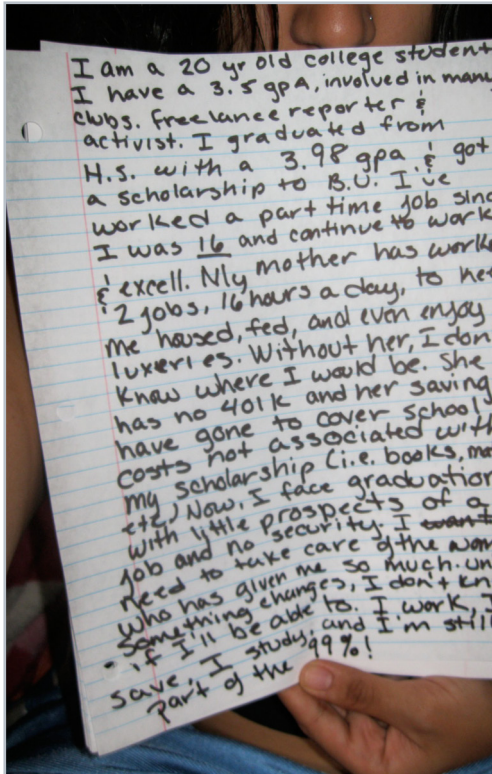 I am a 20 yr old college student
I have a 3.5 gpa, involved in many
clubs. freelance reporter &
activist. I graduated from
H.S. with a 3.98 gpa & got
a scholarship to B.U. I've
worked a part time job sinc
I was 16 and continue to work
& excell. My mother has worke
2 jobs, 16 hours a day, to
me housed, fed, and even enjoy
luxeries. Without her, I don
know where I would be. She
has no 401k and her saving
have gone to cover school
costs not associated with
my scholarship (i.e. books,
etc.) Now, I face graduation
with little prospects of a
job and no security. I want t
need to take care of the wom
who has given me so much. un
something changes, I don't kn
if I'll be able to. I work, I
save, I study, and I'm still
part of the 99%!